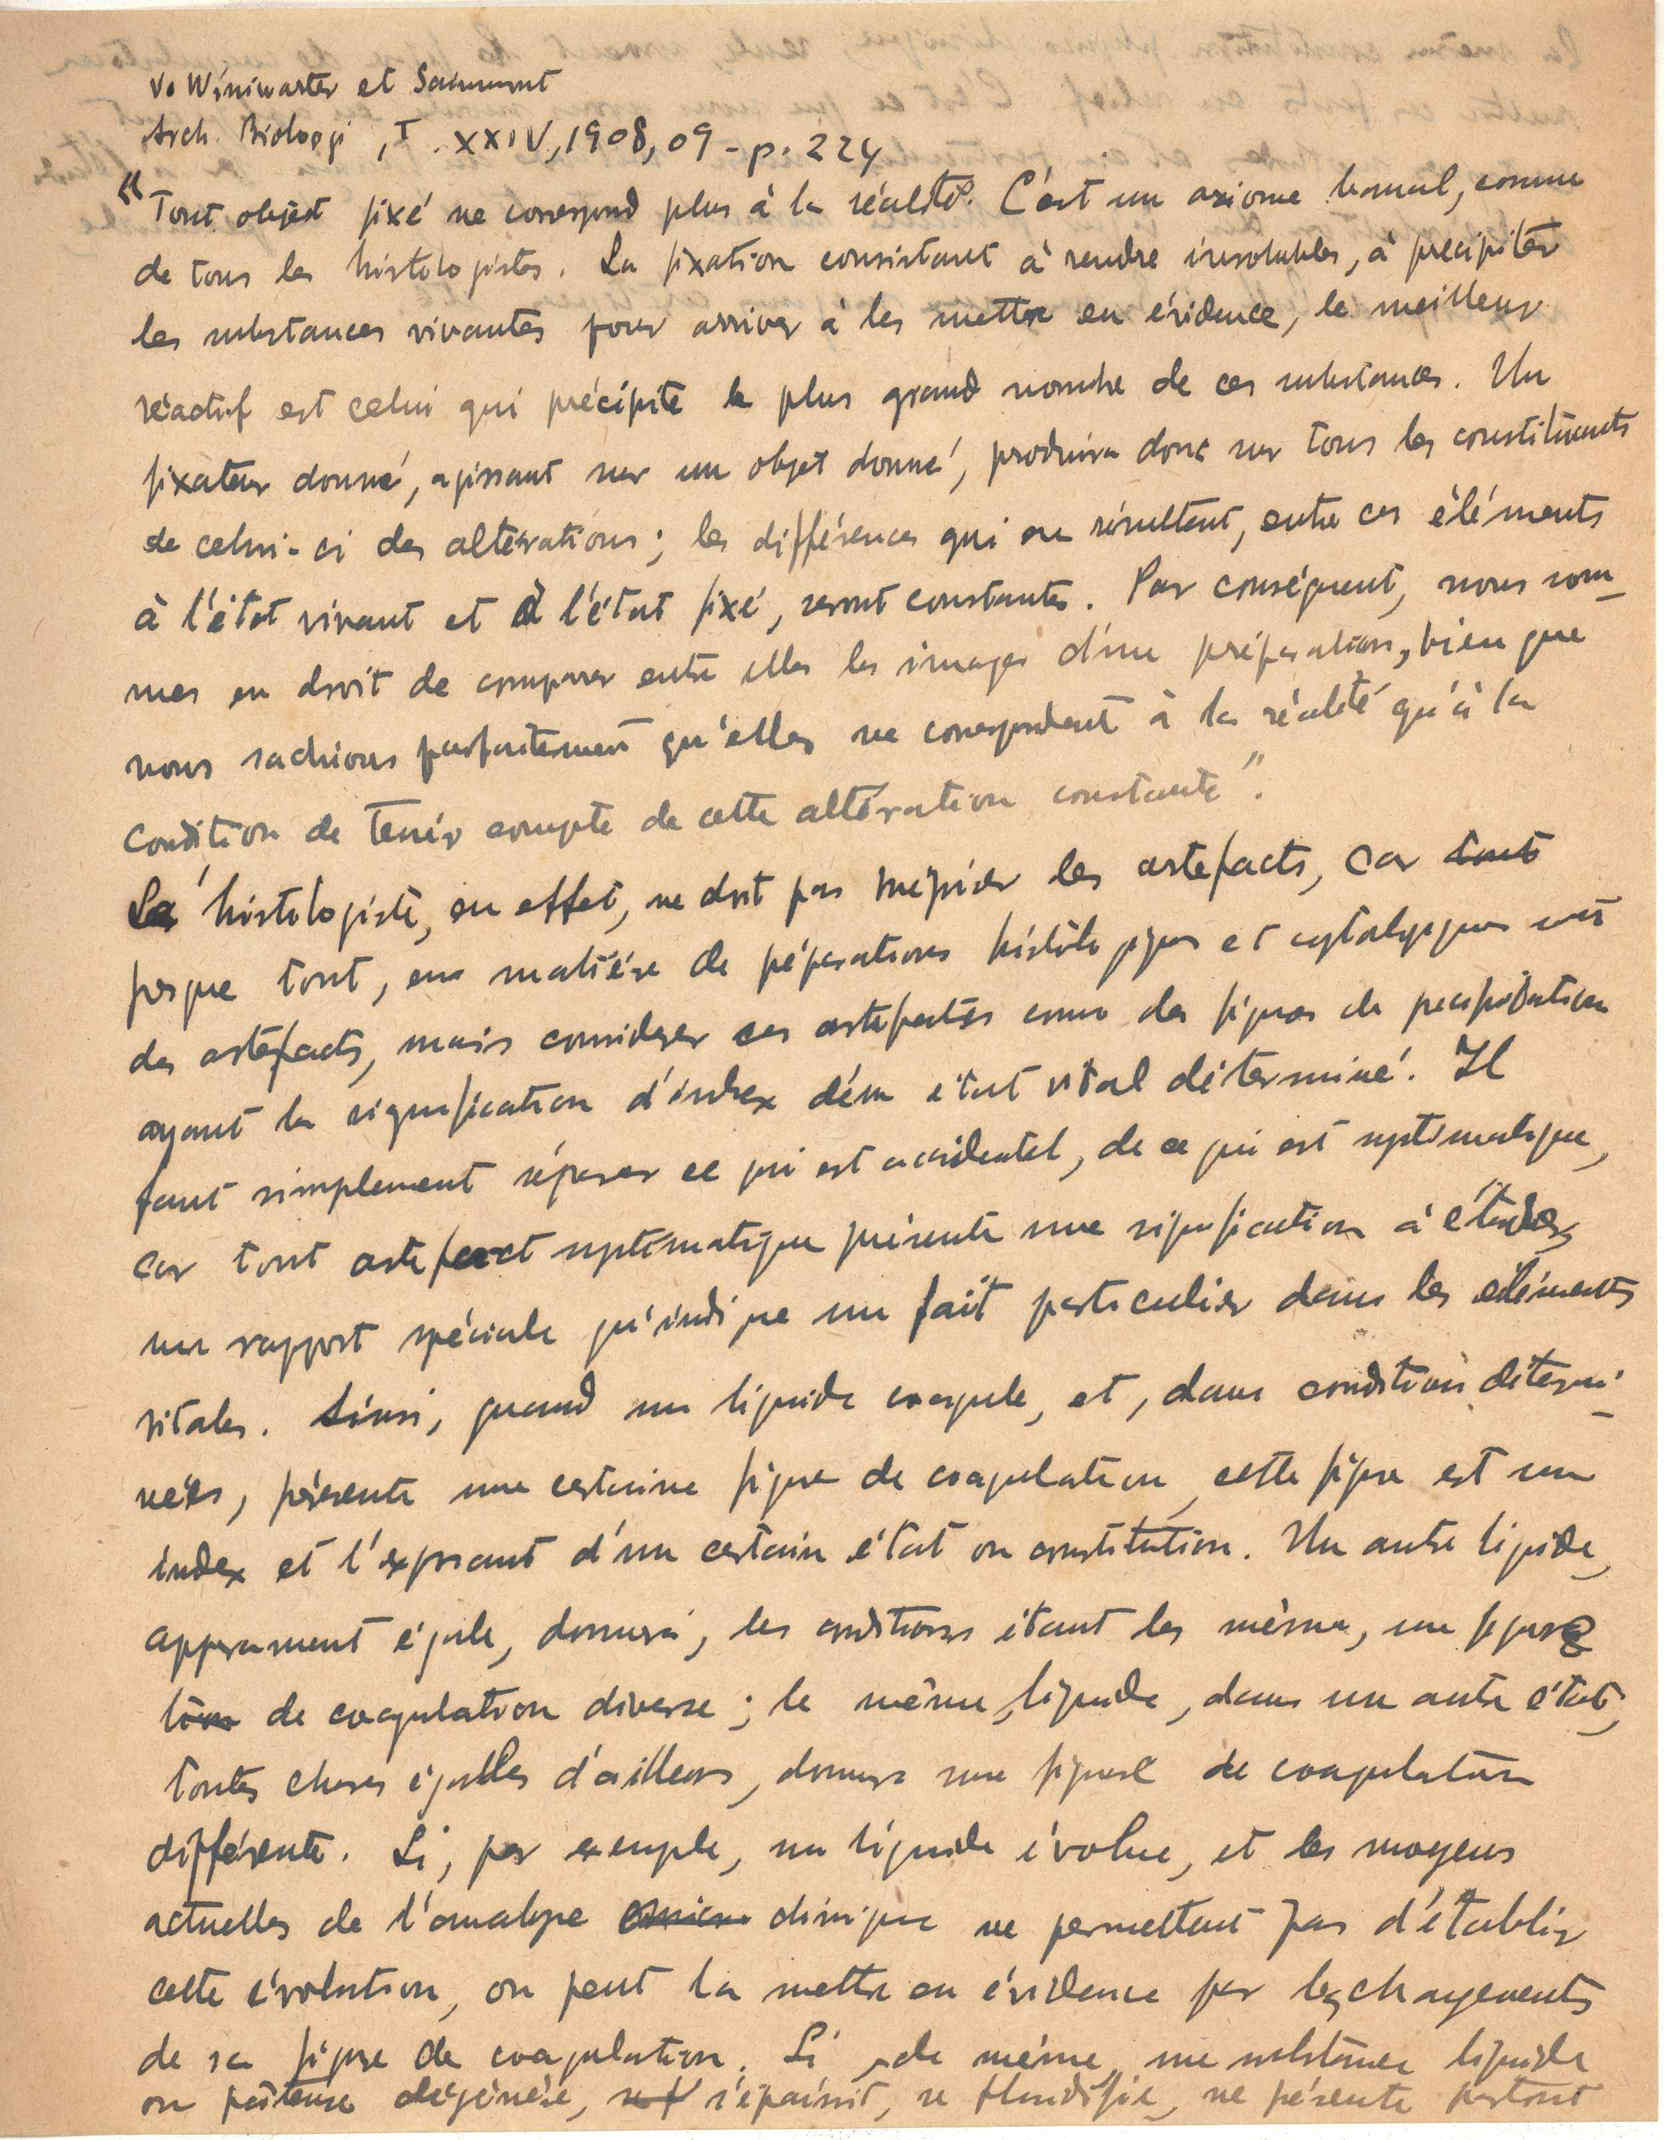 V. Winiwarter et Sainmont
Arch. Biologi, T. XXIV, 1908, 09 - p. 224
"Tout objet fixé ne correspond plus à la réalité. C'est un axiome banal, connu
de tous les histologistes. La fixation consistant à rendre insolubles, à précipiter
les substances vivantes pour arriver à les mettre en évidence, le meilleur
réactif est celui qui précipite le plus grand nombre de ces substances. Un
fixateur donné, agissant sur un objet donné, produira donc sur tous les constituants
de celui-ci des altérations; les différences qui en résultent, entre ces éléments
à l'état vivant et à l'état fixé, seront constantes. Par conséquent, nous som-
mes en droit de comparer entre elles les images d'une préparation, bien que
nous sachions parfaitement qu'elles ne correspondent à la réalité qu'à la
condition de tenir compte de cette altération constante".
L'histologiste, en effet, ne doit pas mépriser les artefacts, car tout
presque tout, en matière de préparations histologiques et cytologiques sont
des artefacts, mais considerer ces artefacts comme des figures de precipitation
ayant la signification d'index d'un état vital déterminé. Il
faut simplement séparer ce qui est accidentel, de ce qui est systématique,
car tout artefact systématique présente une signification à étudier,
un rapport spéciale qu'indique un fait particulier dans les eléments
vitales. Ainsi, quand un liquide coagule, et, dans conditions determi-
nées, présente une certaine figure de coagulation, cette figure est un
index et l'exposant d'un certain état ou constitution. Un autre liquide,
apparament égale, donnera, les conditions étant les mêmes, une figure
de coagulation diverse; le même liquide, dans un autre état,
toutes choses égalles d'ailleurs, donnera une figure de coagulation
différente. Si, par exemple, un liquide évolue, et les moyens
actuelles de l'analyse chimique ne permettent pas d'établir
cette évolution, on peut la mettre en évidence par les changements
de sa figure de coagulation. Si, de même, une substance liquide
ou pâteuse dégénère, s'épaissit, se fluidifie, ne présente partout